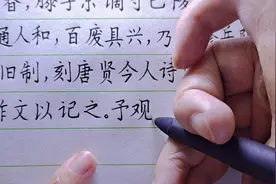 春,滕子京谪守巴陵
通人和,百废具兴,乃
旧制,刻唐贤今人诗
作文以记之。予观